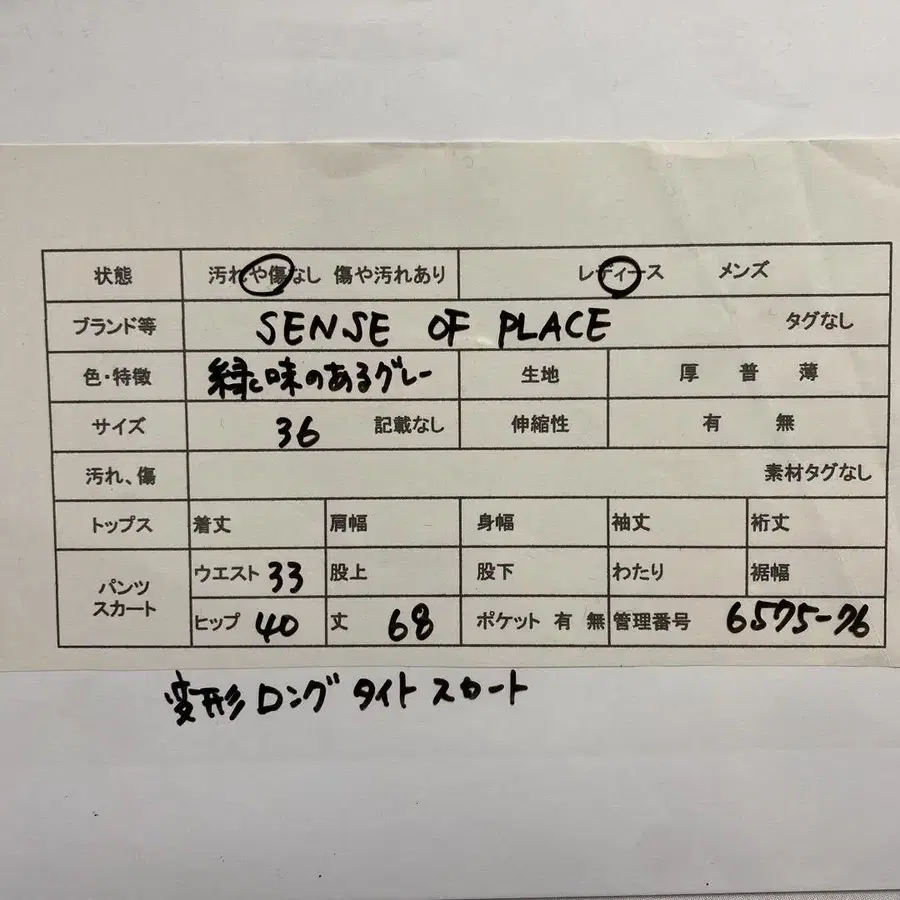 状態 汚れや傷なし 傷や汚れあり レディース メンズ
ブランド等 SENSE OF PLACE タグなし
色・特徴 緑に味のあるグレー 生地 厚 普 薄
サイズ 36 記載なし 伸縮性 有 無
汚れ、傷 素材タグなし
トップス 着丈 肩幅 身幅 袖丈 裄丈
パンツ スカート ウエスト 33 股上 股下 わたり 裾幅
ヒップ 40 丈 68 ポケット 有 無 管理番号 6575-76
変形ロングタイトスカート